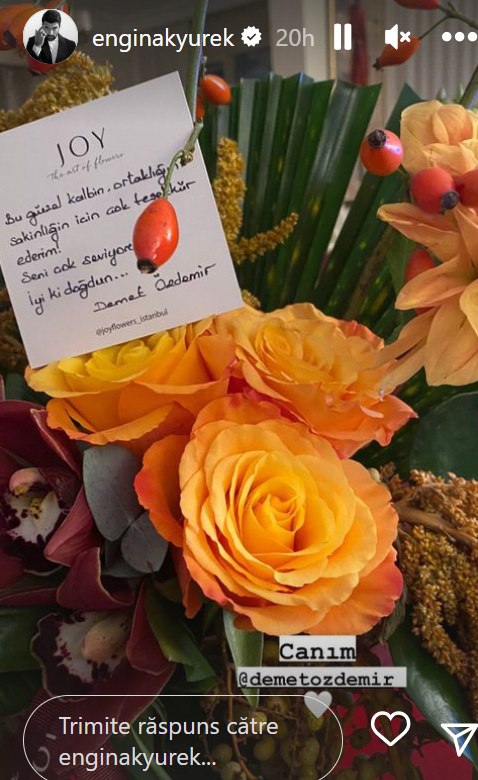 enginakyurek 20h
JOY
The art of flowers
Bu güzel kalbin, ortaklığın
sakinliğin icin cok teşekkür
ederim!
Seni cok seviyore
İyi ki doğdun...
Demet Özdemir
@joyflowers_istanbul
Canım
@demetozdemir
Trimite răspuns către
enginakyurek...